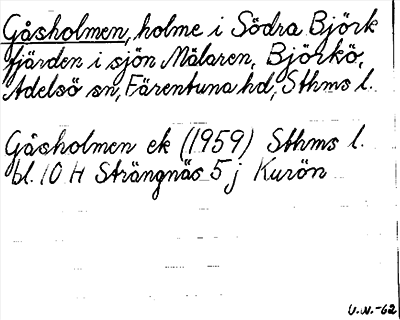 Gåsholmen, holme i Södra Björk
fjärden i sjön Mälaren, Björkö,
Adelsö sn, Färentuna hd, Sthms l.
Gåsholmen ek (1959) Sthms l.
bl. 10 H Strängnäs 5 j Kurön
U.W.-62